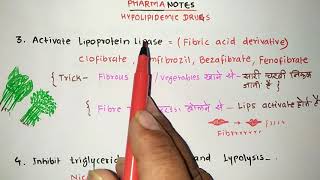 PHARMA NOTES
HYPOLIPIDEMIC DRUGS
3. Activate Lipoprotein Lipase = (Fibric acid derivative)
Clofibrate, mfibrozil, Bezafibrate, Fenofibrate
(Trick- Fibrous / vegetables खाने से - सारी चरबी निकल जाती है)
(Fibre = खोलने से - Lips activate होते हैं
Fibrrrrrr
4. Inhibit triglyceri and Lypolysis -
Nic